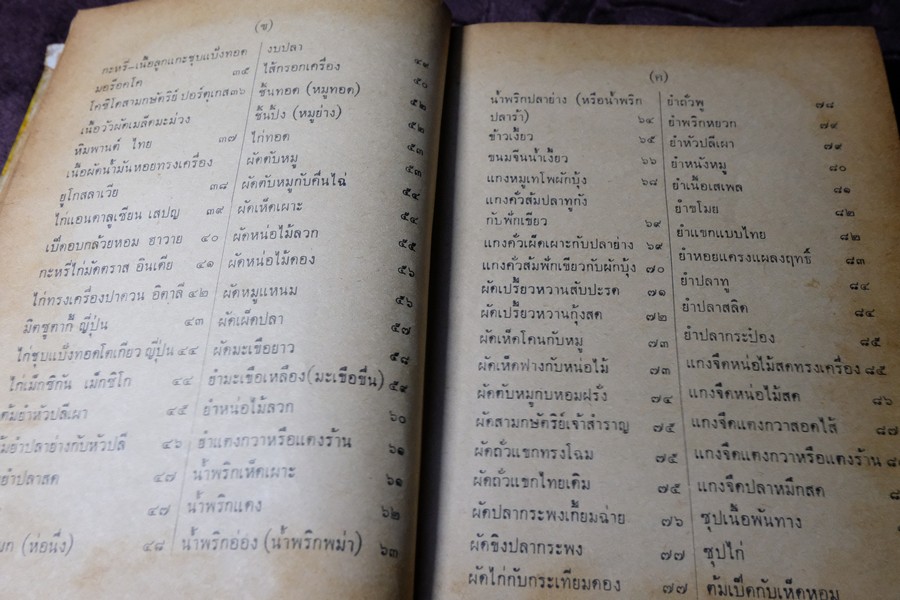 (ข)
กะหรี่-เนื้อลูกแกะชุบแป้งทอด
มอร็อคโค ๓๕
โคซิโดสามกษัตริย์ ปอร์ตุเกส ๓๖
เนื้อวัวผัดเมล็ดมะม่วง
หิมพานต์ ไทย ๓๗
เนื้อผัดน้ำมันหอยทรงเครื่อง
ยูโกสลาเวีย ๓๘
ไก่แอนดาลูเซียน เสปญ ๓๙
เป็ดอบกล้วยหอม ฮาวาย ๔๐
กะหรี่ไก่มัดตราส อินเดีย ๔๑
ไก่ทรงเครื่องปาดวน อิตาลี ๔๒
มิตซูตากี้ ญี่ปุ่น ๔๓
ไก่ชุบแป้งทอดโตเกียว ญี่ปุ่น ๔๔
ไก่เม็กซิกัน เม็กซิโก ๔๔
ต้มยำหัวปลีเผา ๔๕
ยำปลาย่างกับหัวปลี ๔๖
ยำปลาสด ๔๗
๔๗
(ห่อนึ่ง) ๔๘
งบปลา ๔๙
ไส้กรอกเครื่อง ๕๐
ชิ้นทอด (หมูทอด) ๕๒
ชิ้นปิ้ง (หมูย่าง) ๕๒
ไก่ทอด ๕๓
ผัดตับหมู ๕๓
ผัดตับหมูกับคื่นไฉ่ ๕๔
ผัดเห็ดเผาะ ๕๔
ผัดหน่อไม้ลวก ๕๕
ผัดหน่อไม้ดอง ๕๖
ผัดหมูแหนม ๕๖
ผัดเผ็ดปลา ๕๗
ผัดมะเขือยาว ๕๘
ยำมะเขือเหลือง (มะเขือขื่น) ๕๙
ยำหน่อไม้ลวก ๖๐
ยำแตงกวาหรือแตงร้าน ๖๑
น้ำพริกเห็ดเผาะ ๖๑
น้ำพริกแดง ๖๒
น้ำพริกอ่อง (น้ำพริกพม่า) ๖๓
(ค)
น้ำพริกปลาย่าง (หรือน้ำพริก
ปลาร้า) ๖๔
ข้าวเงี้ยว ๖๕
ขนมจีนน้ำเงี้ยว ๖๖
แกงหมูเทโพผักบุ้ง ๖๘
แกงคั่วส้มปลาทูกัง
กับฟักเขียว ๖๙
แกงคั่วเผ็ดเผาะกับปลาย่าง ๖๙
แกงคั่วส้มฟักเขียวกับผักบุ้ง ๗๐
ผัดเปรี้ยวหวานสับปะรด ๗๑
ผัดเปรี้ยวหวานกุ้งสด ๗๒
ผัดเห็ดโคนกับหมู ๗๓
ผัดเห็ดฟางกับหน่อไม้ ๗๓
ผัดตับหมูกับหอมฝรั่ง ๗๔
ผัดสามกษัตริย์เจ้าสำราญ ๗๕
ผัดถั่วแขกทรงโฉม ๗๕
ผัดถั่วแขกไทยเดิม ๗๕
ผัดปลากระพงเกี้ยมฉ่าย ๗๖
ผัดขิงปลากระพง ๗๗
ผัดไก่กับกระเทียมดอง ๗๗
ยำถั่วพู ๗๘
ยำพริกหยวก ๗๙
ยำหัวปลีเผา ๗๙
ยำหนังหมู ๘๐
ยำเนื้อเสเพล ๘๑
ยำขโมย ๘๒
ยำแขกแบบไทย ๘๒
ยำหอยแครงแผลงฤทธิ์ ๘๓
ยำปลาทู ๘๔
ยำปลาสลิด ๘๔
ยำปลากระป๋อง ๘๕
แกงจืดหน่อไม้สดทรงเครื่อง ๘๕
แกงจืดหน่อไม้สด ๘๖
แกงจืดแตงกวาสอดไส้ ๘๗
แกงจืดแตงกวาหรือแตงร้าน
แกงจืดปลาหมึกสด
ซุปเนื้อพันทาง
ซุปไก่
ต้มเป็ดกับเห็ดหอม